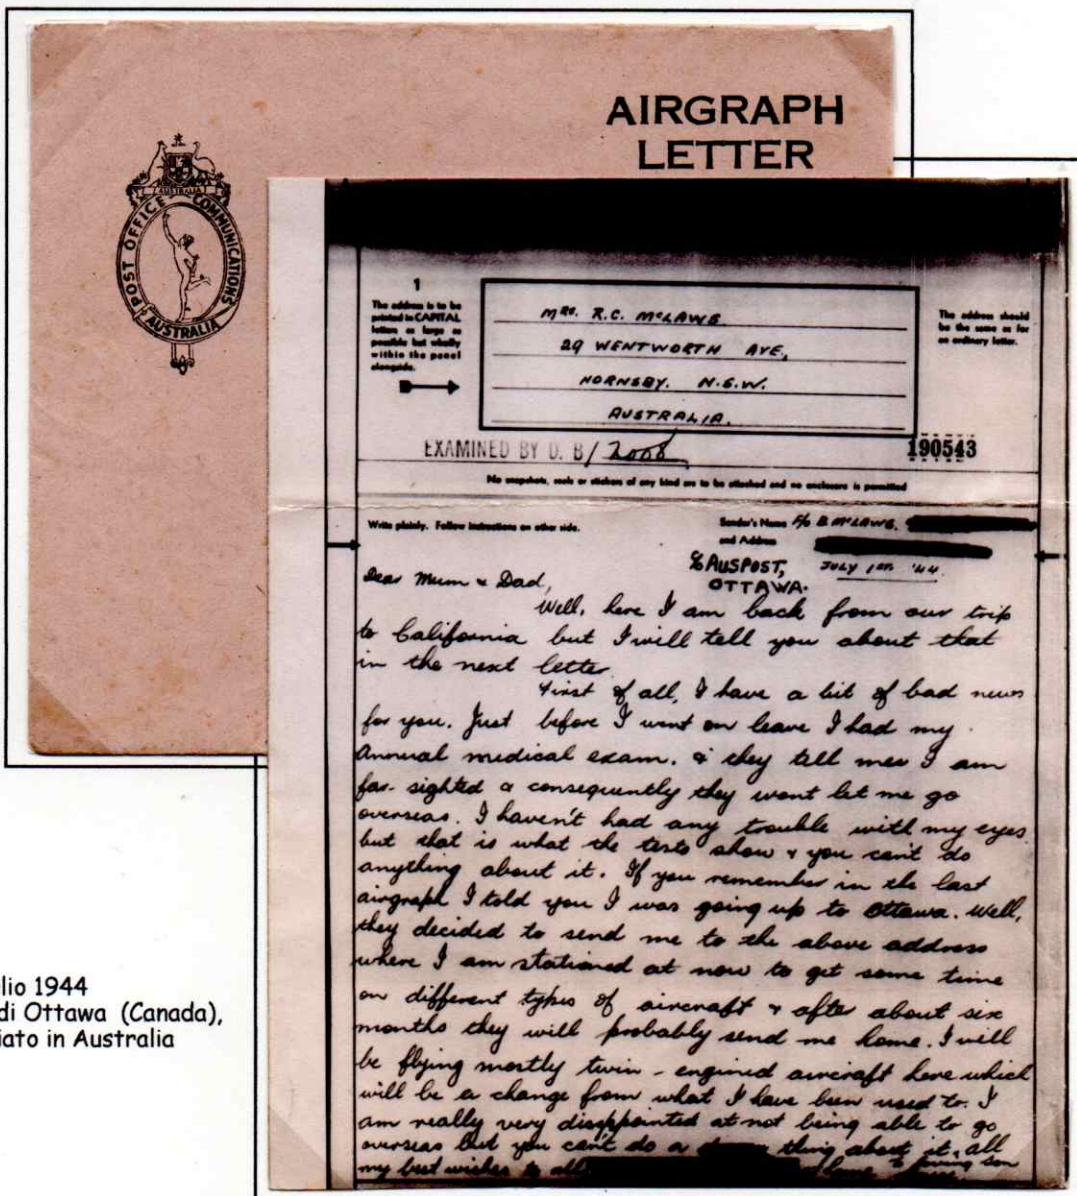 AIRGRAPH
LETTER
AUSTRALIA
POST OFFICE COMMUNICATIONS
AUSTRALIA
1
The address is to be
printed in CAPITAL
letters as large as
possible but wholly
within the panel
alongside.
MRS. R.C. McLAWS
29 WENTWORTH AVE,
HORNSBY. N.S.W.
AUSTRALIA.
The address should
be the same as for
an ordinary letter.
EXAMINED BY D. B/ 2008
190543
No snapshots, seals or stickers of any kind are to be attached and no enclosure is permitted
Write plainly. Follow instructions on other side.
Sender's Name F/o B. McLAWS.
and Address
c/o AUSPOST,
OTTAWA.
JULY 1ST '44
Dear Mum & Dad,
Well, here I am back from our trip
to California but I will tell you about that
in the next letter.
First of all, I have a bit of bad news
for you. Just before I went on leave I had my
Annual medical exam. & they tell me I am
far-sighted & consequently they wont let me go
overseas. I haven't had any trouble with my eyes
but that is what the tests show & you can't do
anything about it. If you remember in the last
airgraph I told you I was going up to Ottawa. Well,
they decided to send me to the above address
where I am stationed at now to get some time
on different types of aircraft & after about six
months they will probably send me home. I will
be flying mostly twin-engined aircraft here which
will be a change from what I have been used to. I
am really very disappointed at not being able to go
overseas but you can't do a thing about it. All
my best wishes to all loving son
lio 1944
di Ottawa (Canada),
iato in Australia